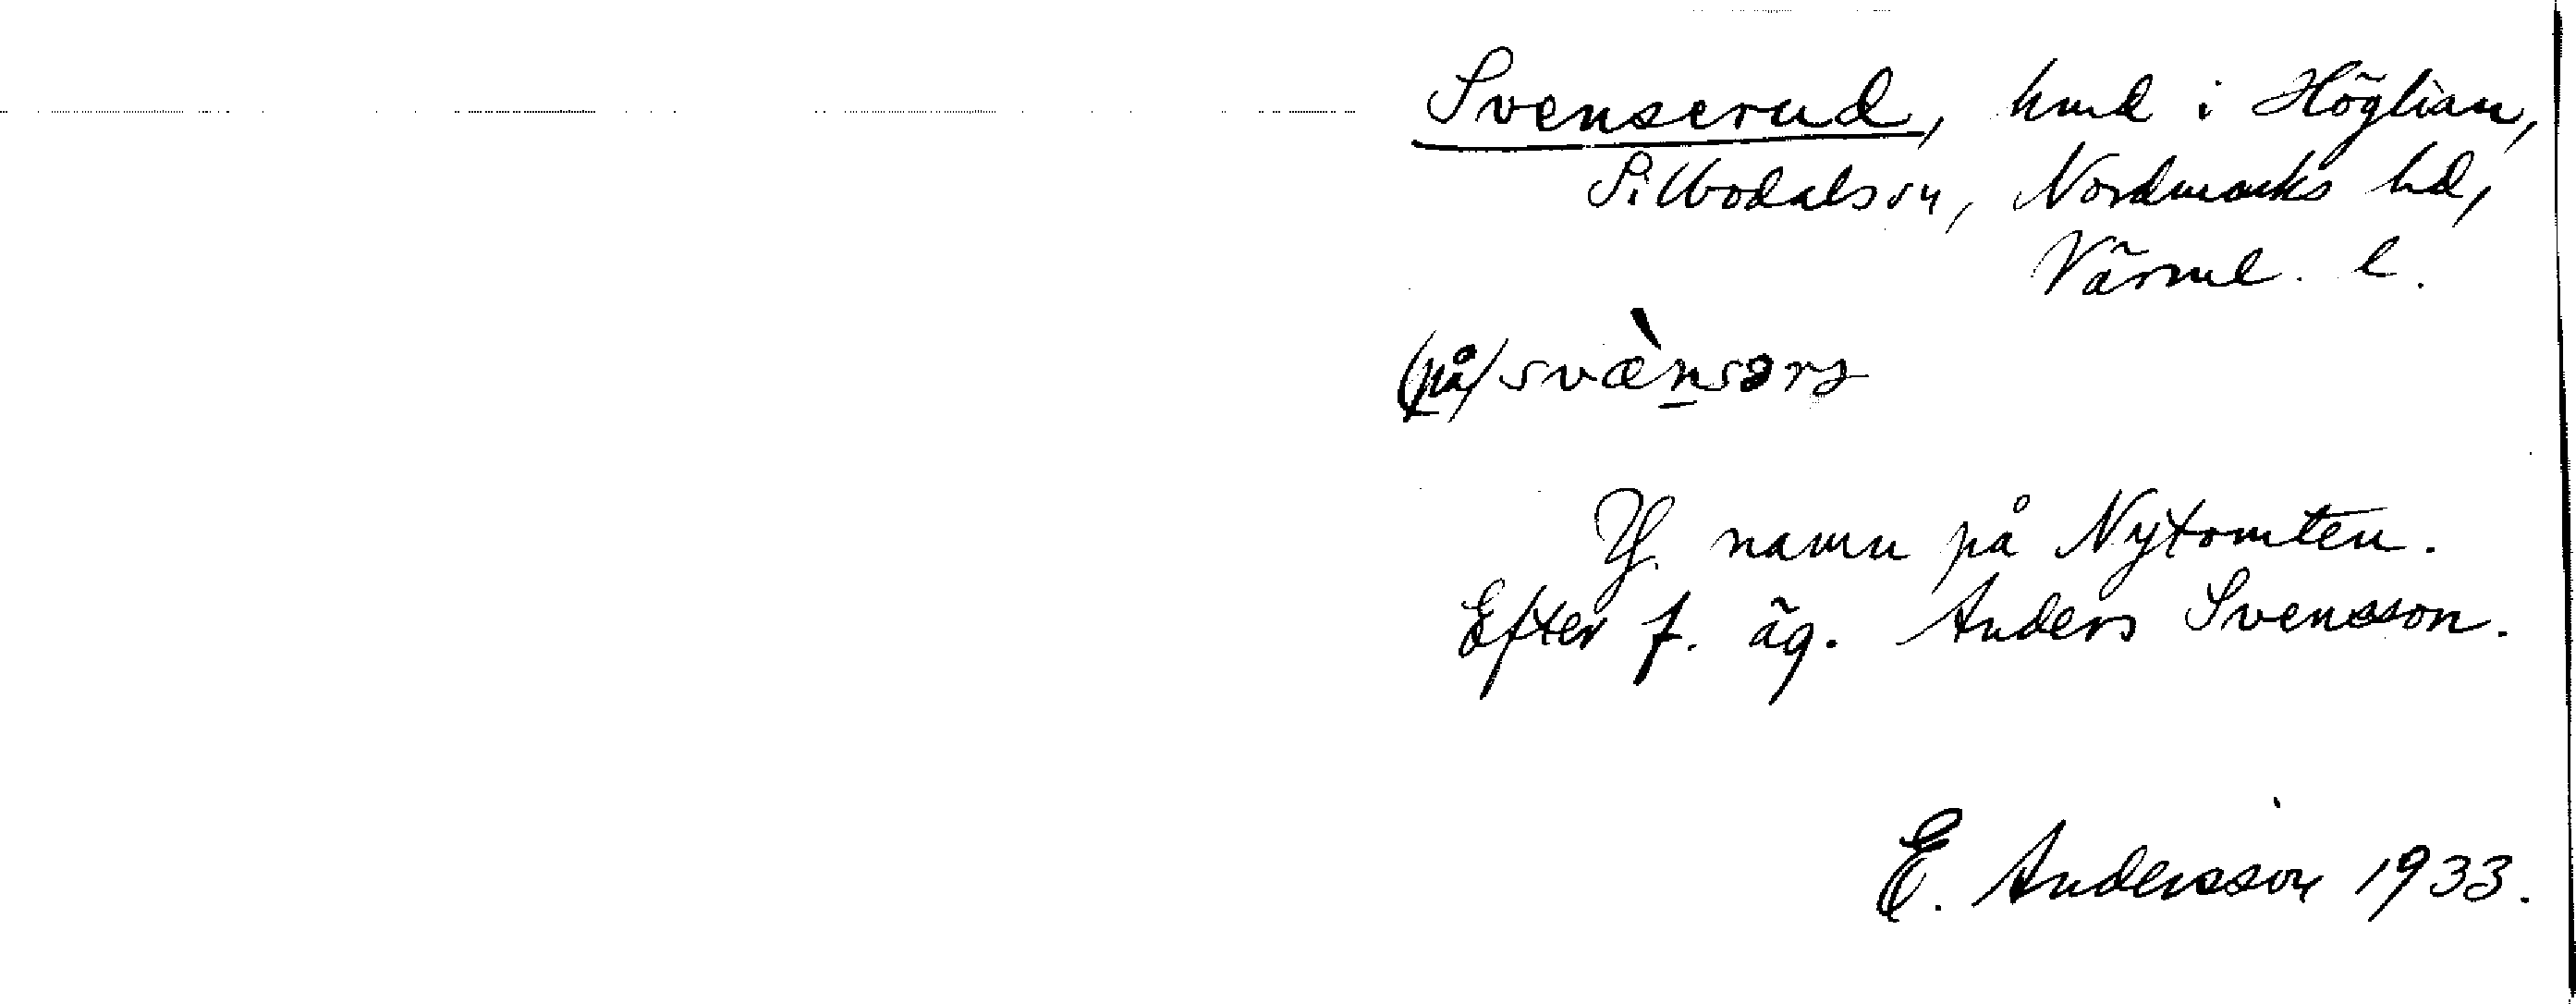 Svenserud, hmd i Höglian,
Sillbodals sn, Nordmarks hd,
Värml. l.
(på) svæ̀nsərs
Y. namn på Nytomten.
Efter f. äg. Anders Svensson.
E. Andersson 1933.